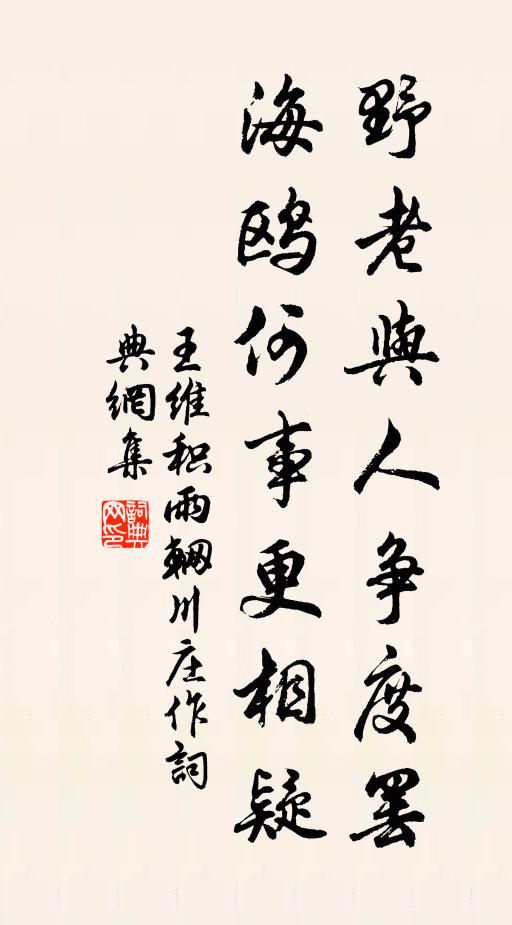 野老與人争度罷
海鸥何事更相疑
王維积雨輞川庄作詞
典網集
詞典
网印